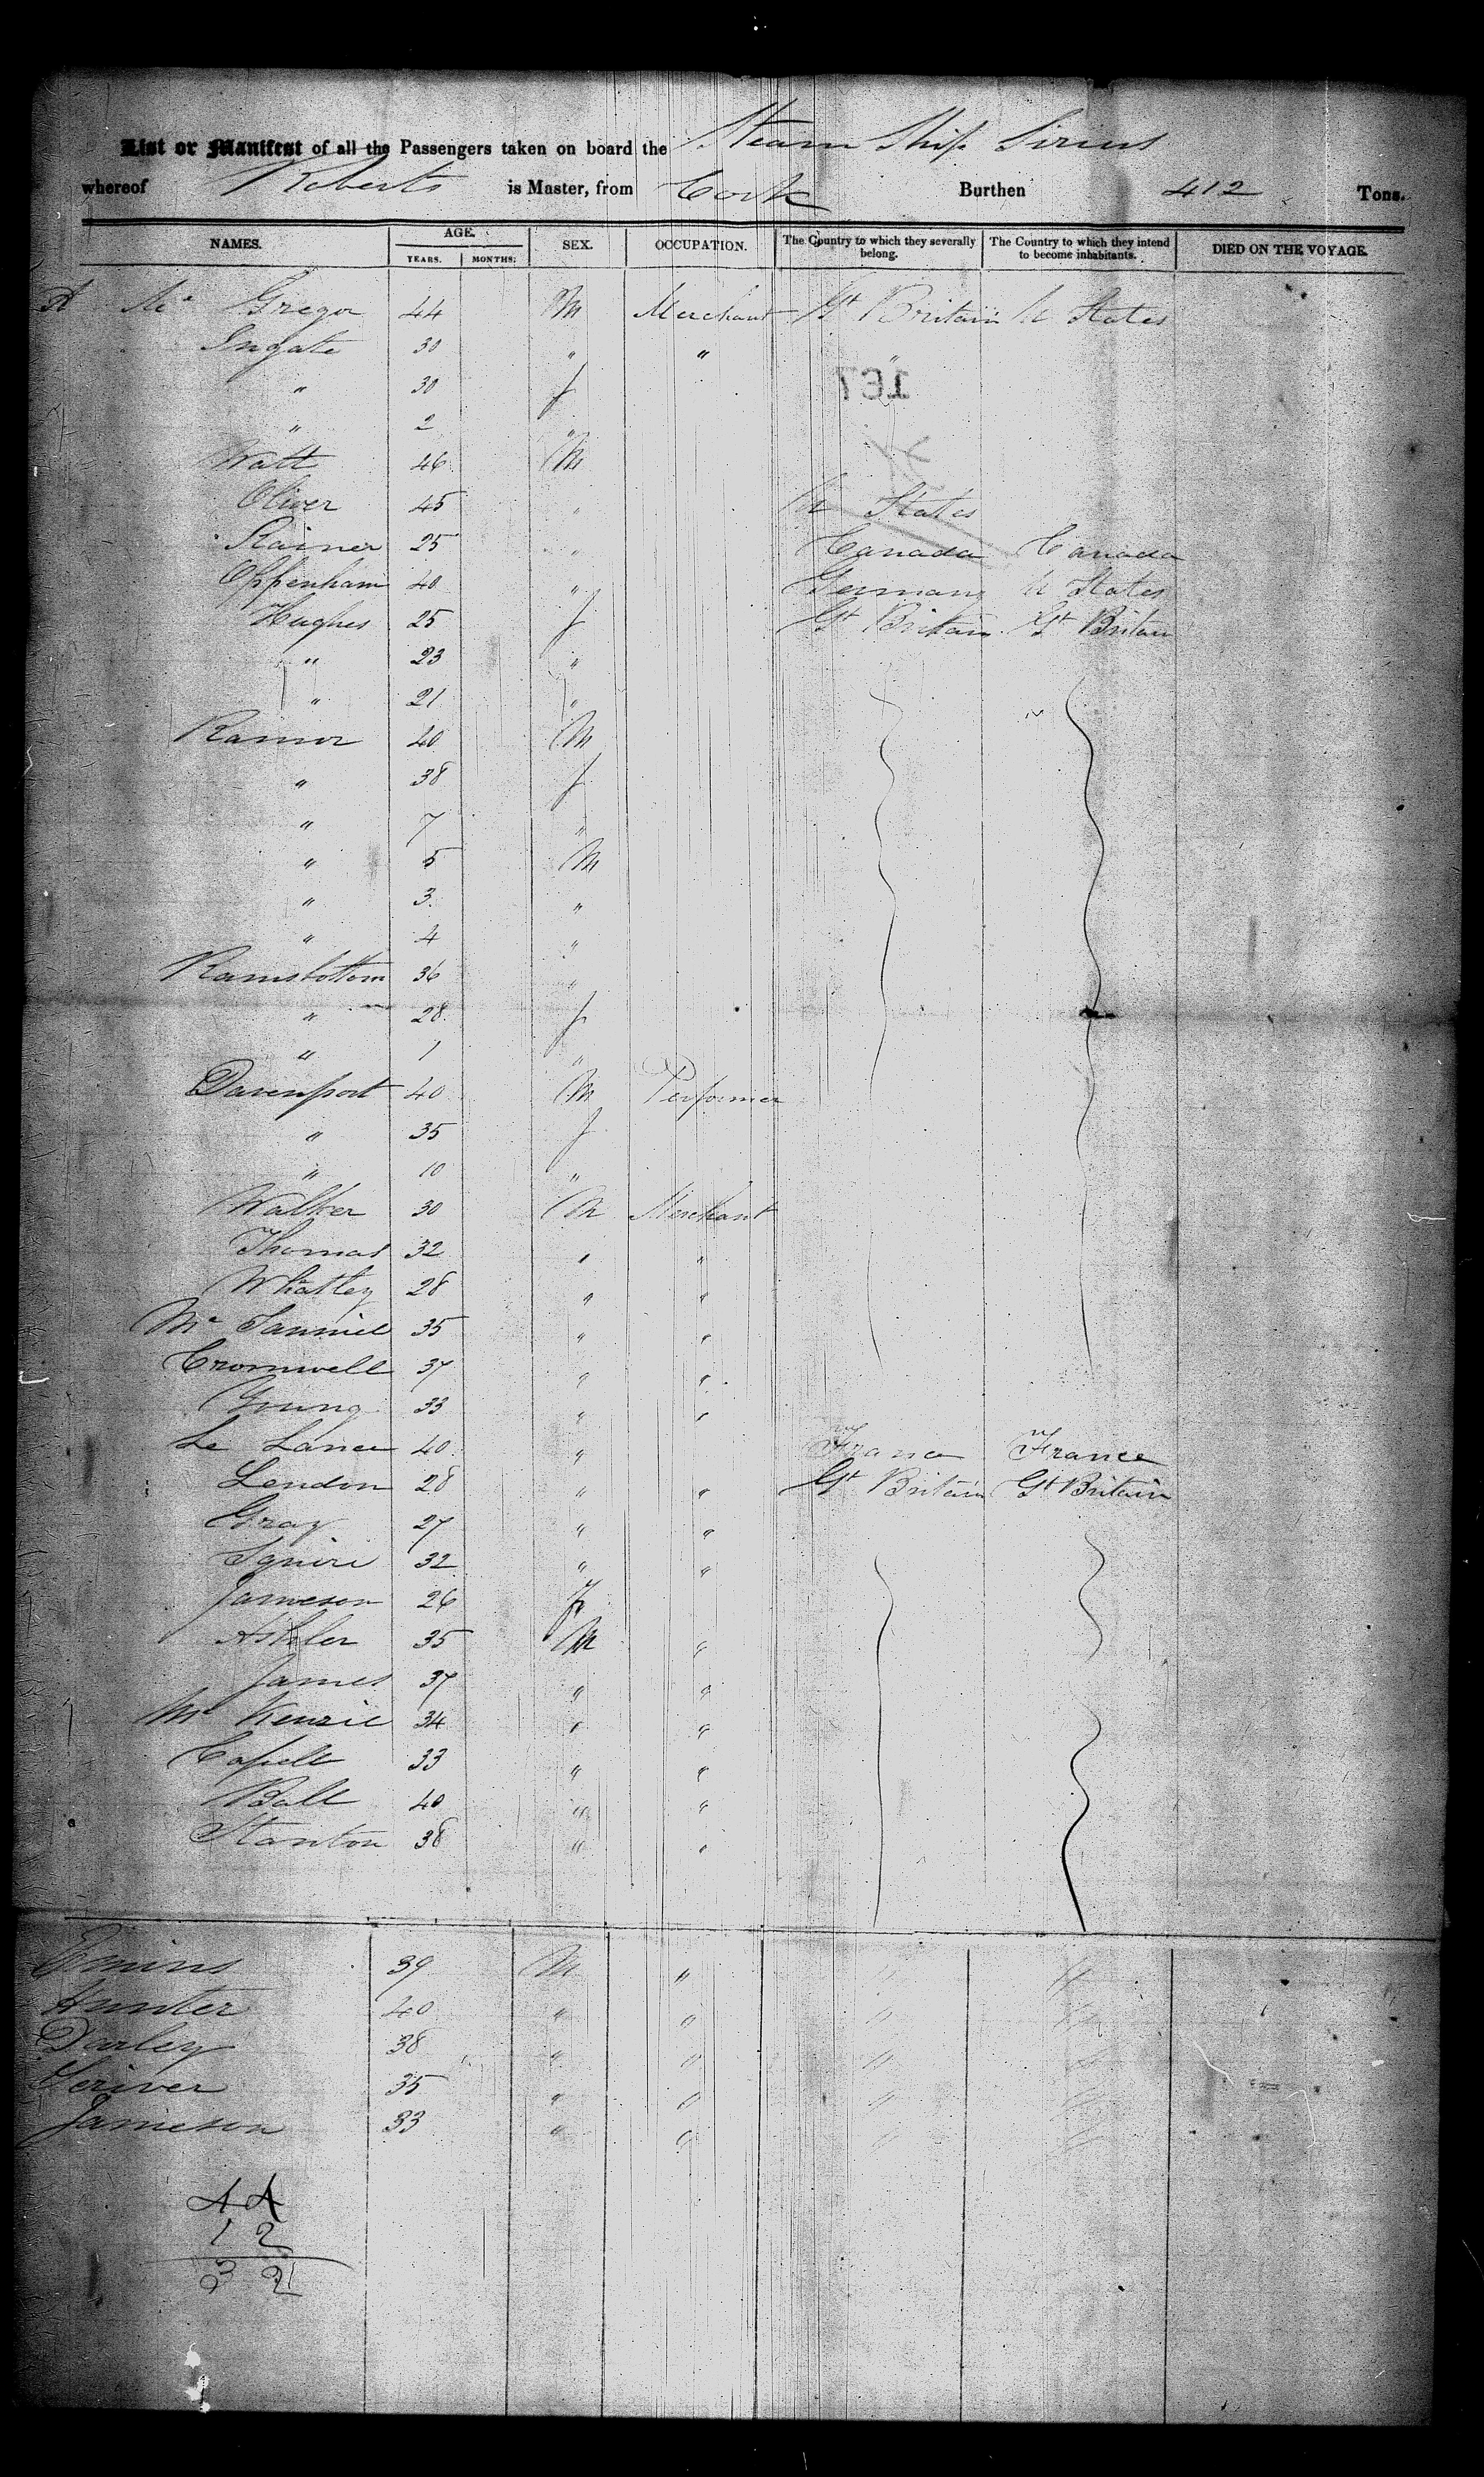 List or Manifest of all the Passengers taken on board the Steam Ship Sirius
whereof Roberts is Master, from Cork Burthen 412 Tons.
NAMES. AGE. SEX. OCCUPATION. The Country to which they severally belong. The Country to which they intend to become inhabitants. DIED ON THE VOYAGE.
YEARS. MONTHS.
Mc Gregor 44 M Merchant Gt Britain U States
Ingate 30 " "
" 30 f
167
" 2 "
Watt 46 M
Oliver 45 " U States
Rainer 25 " Canada Canada
Oppenham 40 " Germany U States
Hughes 25 f Gt Britain Gt Britain
" 23 "
" 21 "
Rainor 40 M
" 38 f
" 7 "
" 5 M
" 3 "
" 4 "
Ramsbottom 36 "
" 28 f
" 1 "
Davenport 40 M Performer
" 35 f
" 10 "
Walker 30 M Merchant
Thomas 32 " "
Whatley 28 " "
Mc 35 " "
Cromwell 37 " "
Young 33 " "
Le Lance 40 " France France
Lendon 28 " " Gt Britain Gt Britain
Gray 27 " "
Squire 32 " "
Jameson 26 F
35 M "
James 37 " "
Mc Kenzie 34 " "
Capell 33 " "
Ball 40 " "
Stanton 38 " "
39 M " " "
Hunter 40 " " " "
Darley 38 " " " "
Scriver 35 " " " "
Jameson 33 " " " "
44
12
32